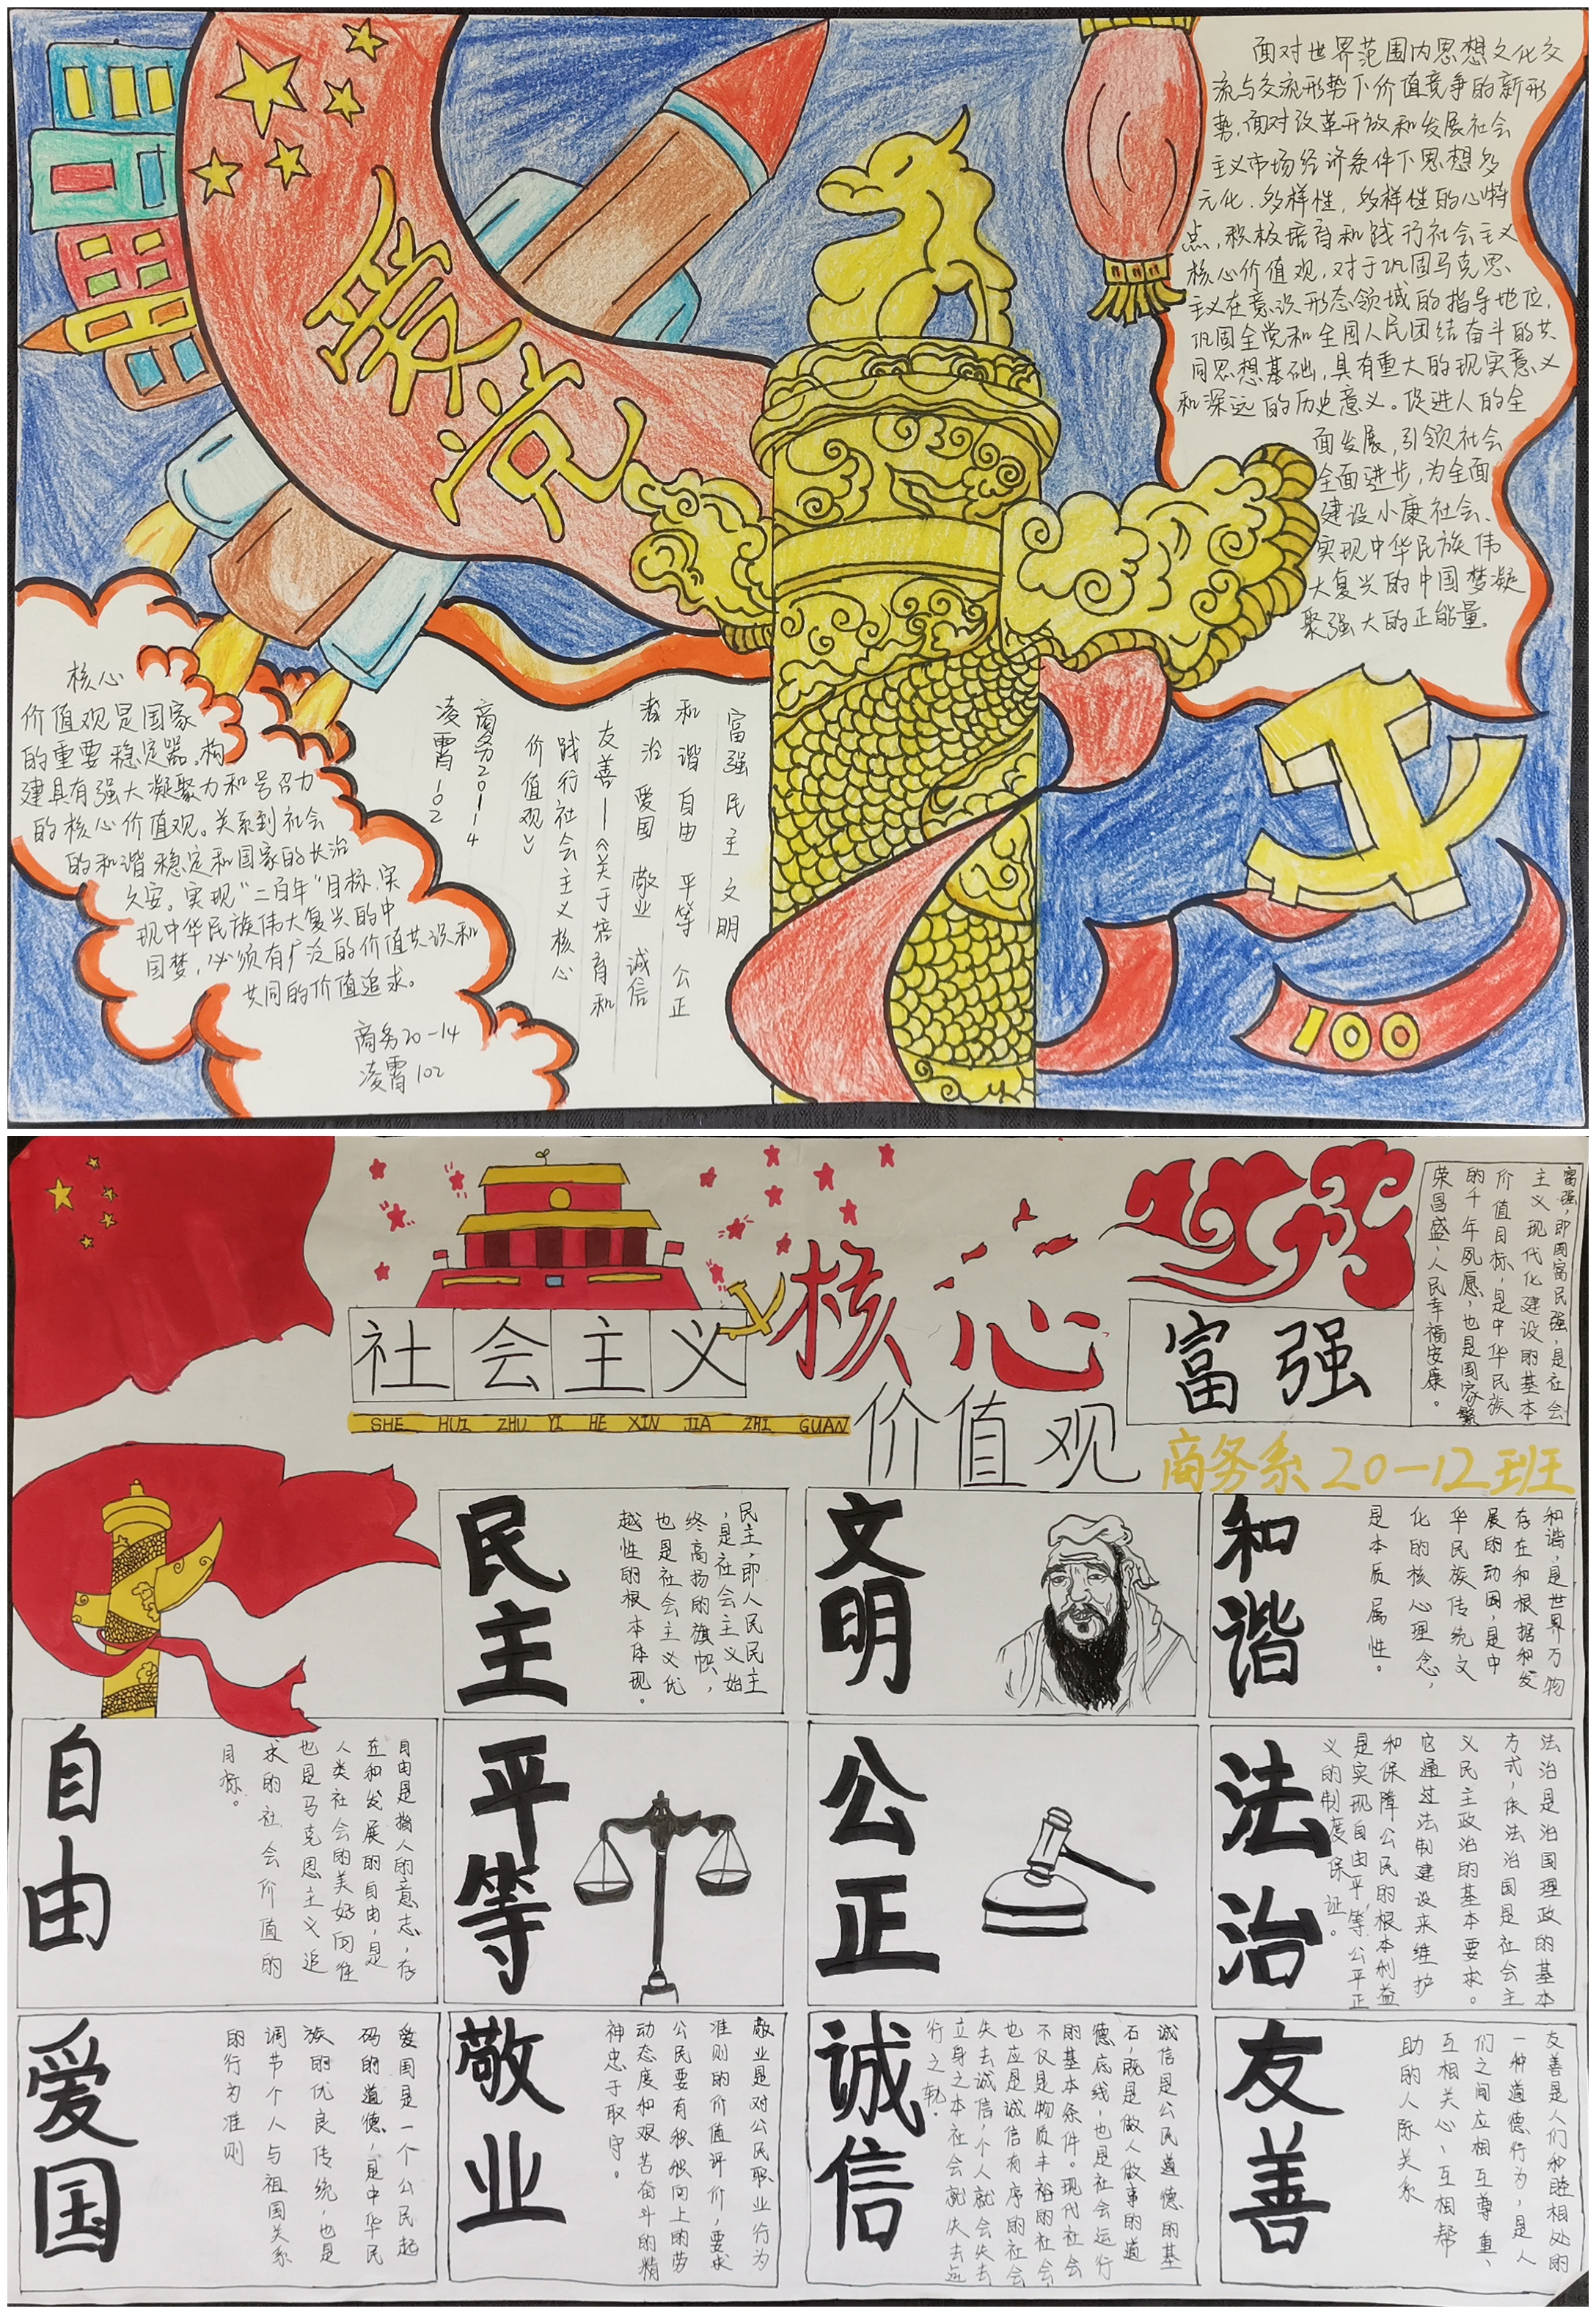 爱党
面对世界范围内思想文化交
流与交流形势下价值竞争的新形
势，面对改革开放和发展社会
主义市场经济条件下思想多
元化．多样性，多样性的心特
点，积极培育和践行社会主义
核心价值观，对于巩固马克思
主义在意识形态领域的指导地位，
巩固全党和全国人民团结奋斗的共
同思想基础，具有重大的现实意义
和深远的历史意义。促进人的全
面发展，引领社会
全面进步，为全面
建设小康社会、
实现中华民族伟
大复兴的中国梦凝
聚强大的正能量。
核心
价值观是国家
的重要稳定器。构
建具有强大凝聚力和号召力
的核心价值观。关系到社会
的和谐稳定和国家的长治
久安。实现“二百年”目标．实
现中华民族伟大复兴的中
国梦，必须有广泛的价值共识和
共同的价值追求。
商务20-14
凌霄102
富强 民主 文明
和谐 自由 平等 公正
治 爱国 敬业 诚信
友善—《关于培育和
践行社会主义核心
价值观》
商务2014
凌霄102
100
社会主义
核心
价值观
SHE HUI ZHU YI HE XIN JIA ZHI GUAN
富强
富强，即国富民强，是社会
主义现代化建设的基本
价值目标，是中华民族
的千年夙愿，也是国家繁
荣昌盛，人民幸福安康。
商务系20-12班
民主
民主，即人民民主
，是社会主义始
终高扬的旗帜，
也是社会主义优
越性的根本体现。
文明
和谐
和谐，是世界万物
存在和根据和发
展的动因，是中
华民族传统文
化的核心理念，
是本质属性。
自由
自由是指人的意志，存
在和发展的自由，是
人类社会的美好向往
也是马克思主义追
求的社会价值的
目标。
平等
公正
法治
法治是治国理政的基本
方式，依法治国是社会主
义民主政治的基本要求。
它通过法制建设来维护
和保障公民的根本利益
是实现自由平等，公平正
义的制度保证。
爱国
爱国是一个公民起
码的道德，是中华民
族的优良传统，也是
调节个人与祖国关系
的行为准则
敬业
敬业是对公民职业行为
准则的价值评价，要求
公民要有积极向上的劳
动态度和艰苦奋斗的精
神忠于取守。
诚信
诚信是公民道德的基
石，既是做人做事的道
德底线，也是社会运行
的基本条件。现代社会
不仅是物质丰裕的社会
也应是诚信有序的社会
失去诚信，个人就会失去
立身之本社会就失去运
行之轨．
友善
友善是人们和睦相处的
一种道德行为，是人
们之间应相互尊重、
互相关心、互相帮
助的人际关系